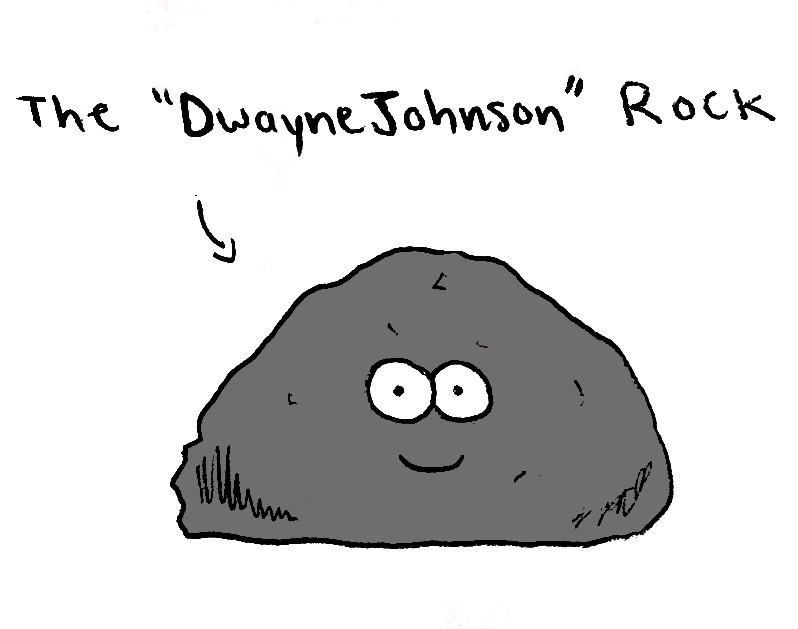 The "Dwayne Johnson" Rock